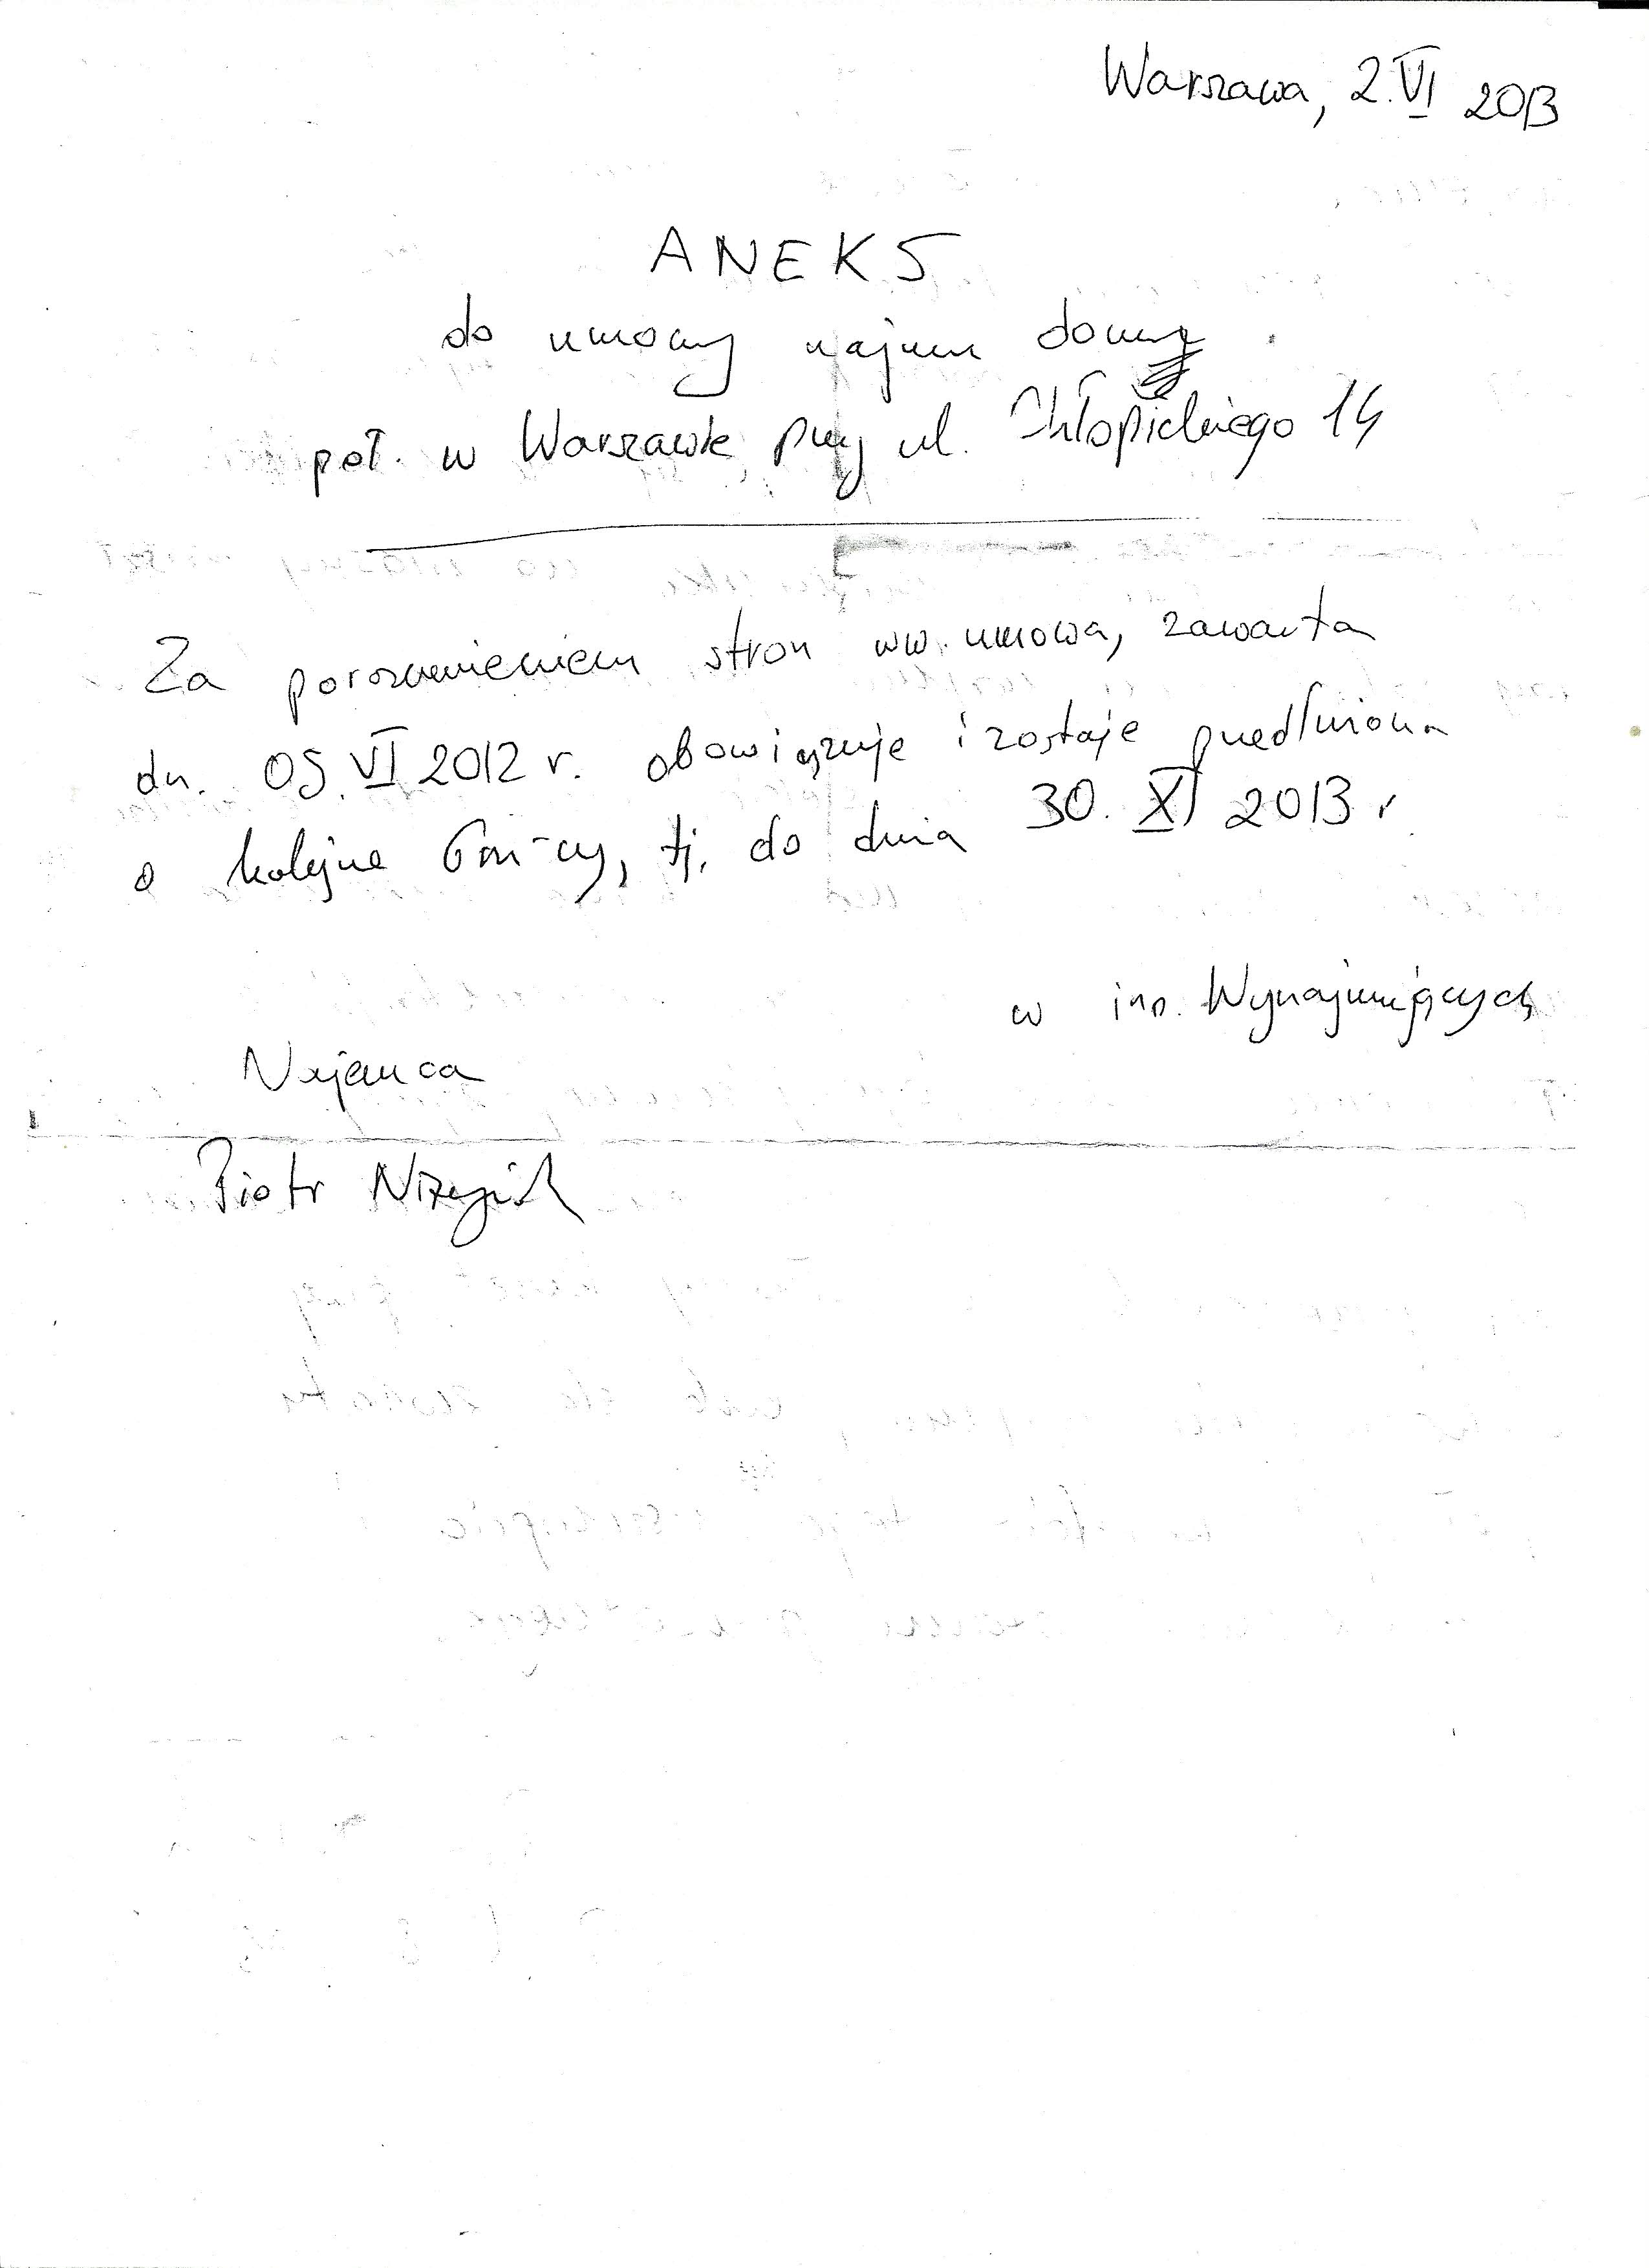 Warszawa, 2.VI 2013
ANEKS
do umowy najmu domu
poł. w Warszawie przy ul. Chłopickiego 14
Za porozumieniem stron ww. umowa, zawarta
dn. 05.VI 2012 r. obowiązuje i zostaje przedłużona
o kolejne 6 m-cy, tj. do dnia 30. XI 2013 r
w im. Wynajmujących
Najemca
Piotr